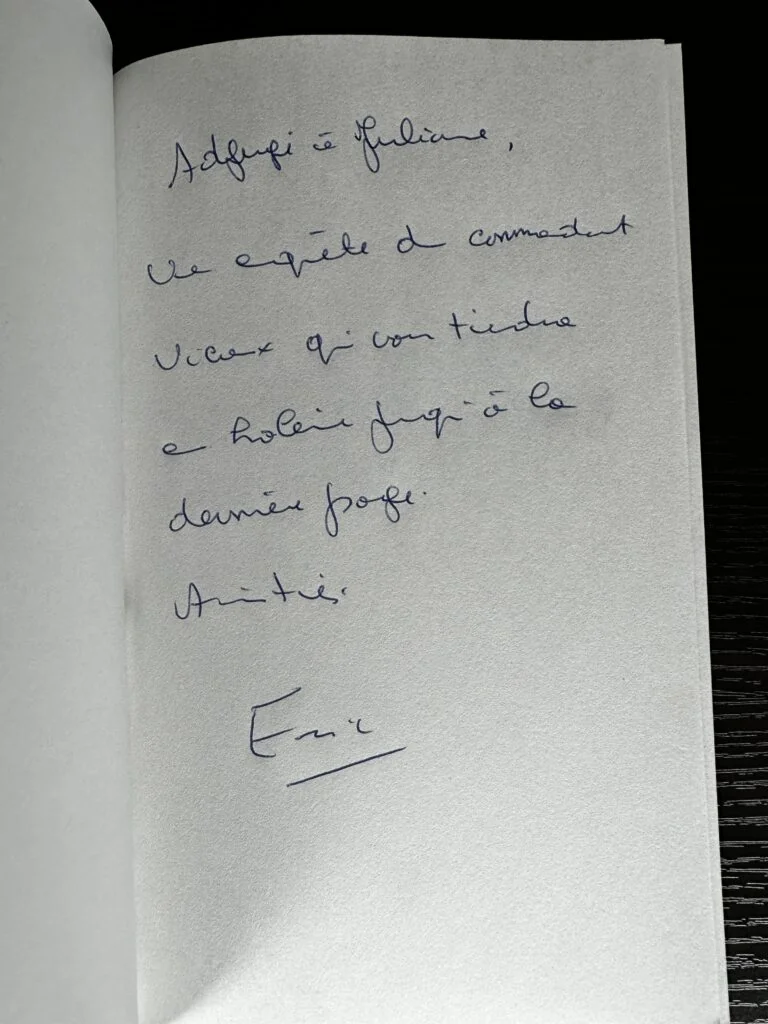 à Juliane,
Une enquête du commandant
qui vous tiendra
en haleine jusqu'à la
dernière page.
Amitiés.
Eric